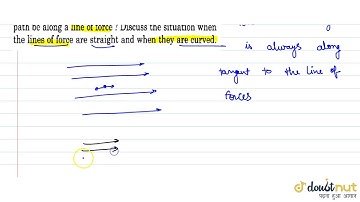 path be along a line of force ? Discuss the situation when
the lines of force are straight and when they are curved.
is always along
tangent to the line of
forces
doubtnut
पढ़ना हुआ आसान